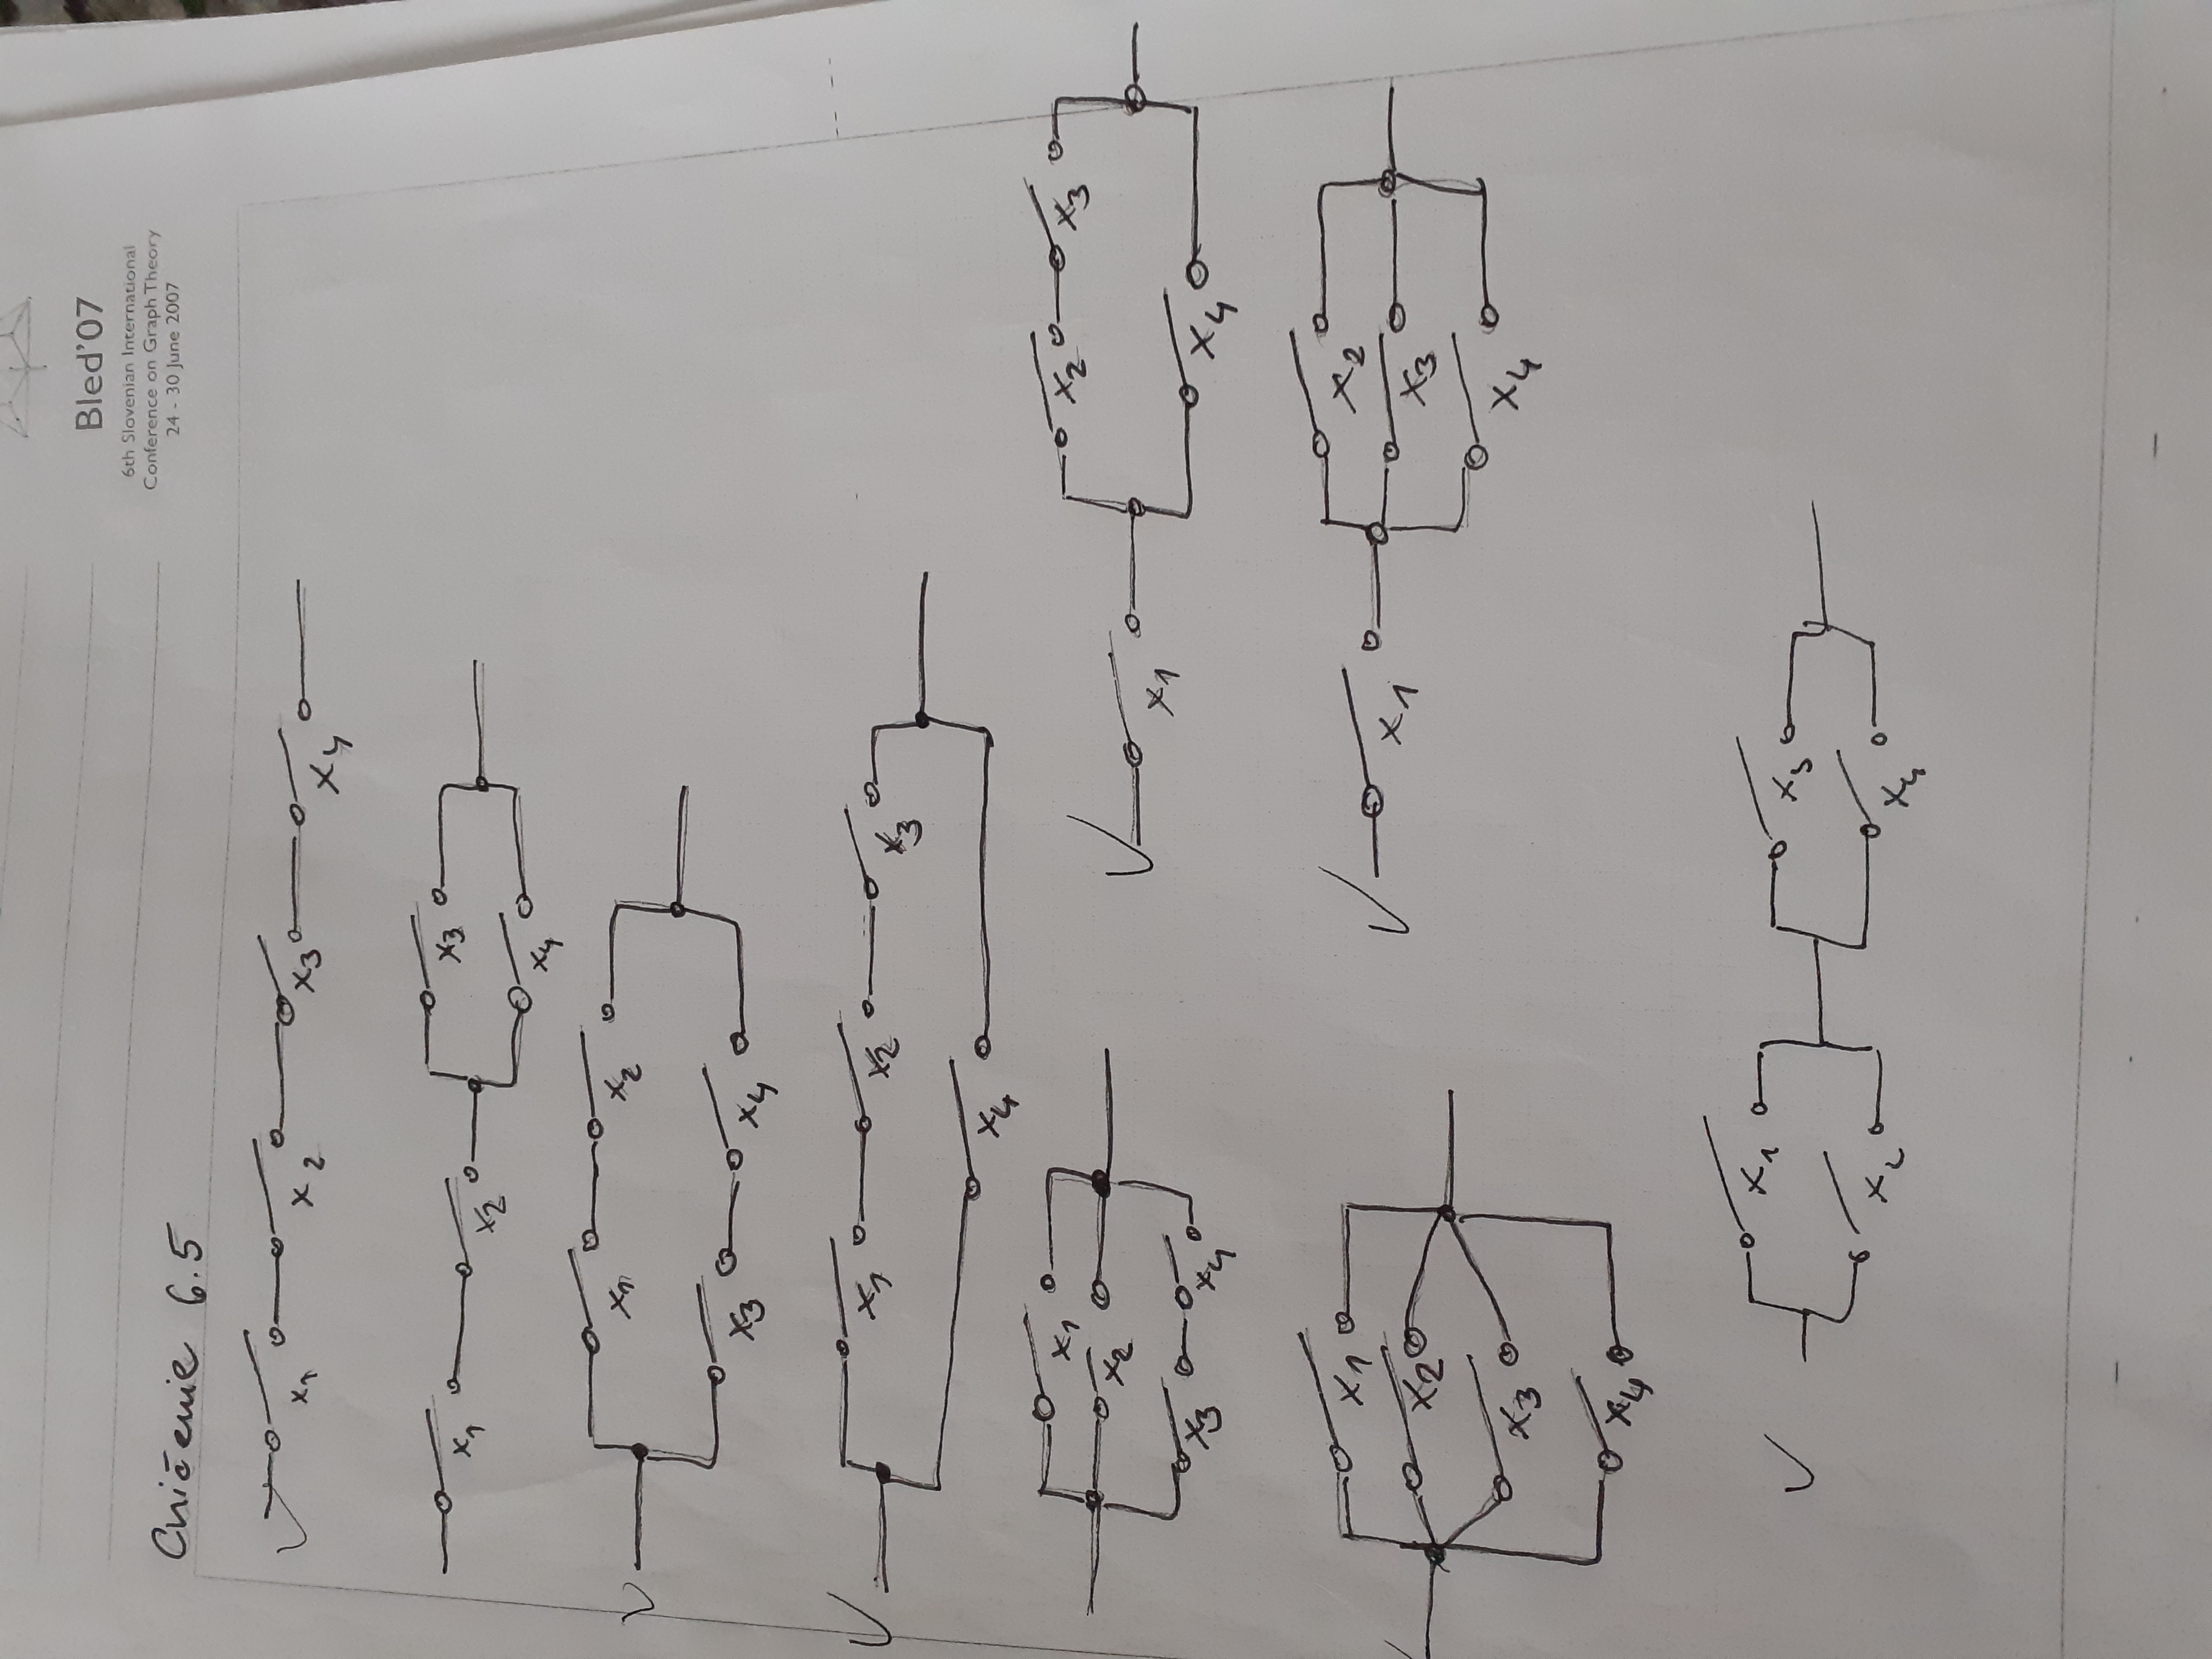 Bled'07
6th Slovenian International
Conference on Graph Theory
24 - 30 June 2007
Cvičenie 6.5
x1 x2 x3 x4
x3
x1 x2
x4
x1 x2
x3 x4
x1 x2 x3
x4
x1
x2
x3 x4
x2 x3
x1
x4
x1
x2
x3
x4
x2
x1
x3
x4
x1 x3
x2 x4